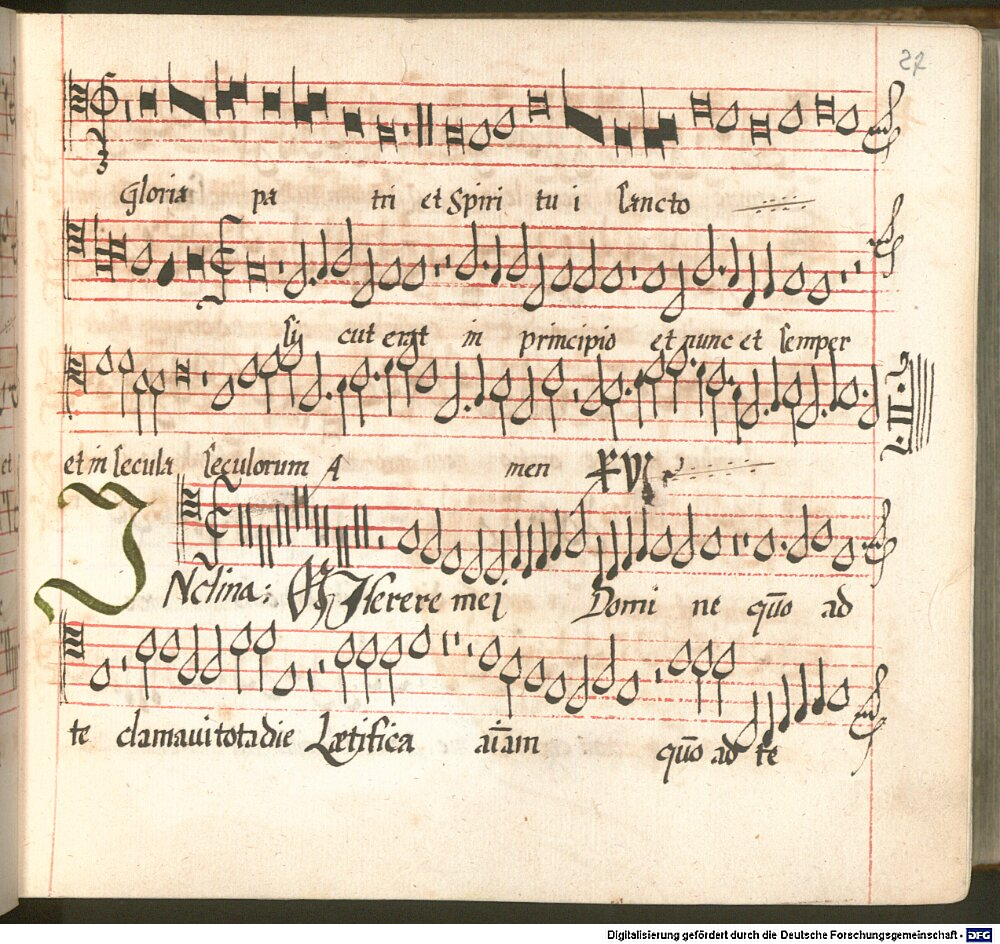 27
3
Gloria pa tri et Spiri tu i sancto
si cut erat in principio et nunc et semper
et in secula seculorum A men XV
INclina: Miserere mei Domi ne quo ad
te clamaui tota die Lætifica aīam quo ad te
Digitalisierung gefördert durch die Deutsche Forschungsgemeinschaft - DFG